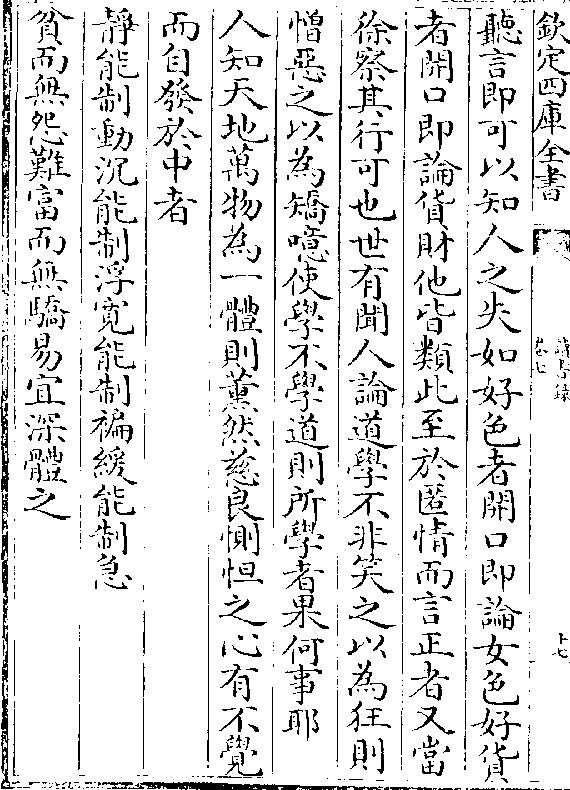 欽定四庫全書
讀書錄
卷七
十七
聽言即可以知人之失如好色者開口即論女色好貨
者開口即論貨財他皆類此至於匿情而言正者又當
徐察其行可也世有聞人論道學不非笑之以為狂則
憎惡之以為矯噫使學不學道則所學者果何事耶
人知天地萬物為一體則薫然慈良惻怛之心有不覺
而自發於中者
靜能制動沉能制浮寛能制褊緩能制急
貧而無怨難富而無驕易宜深體之